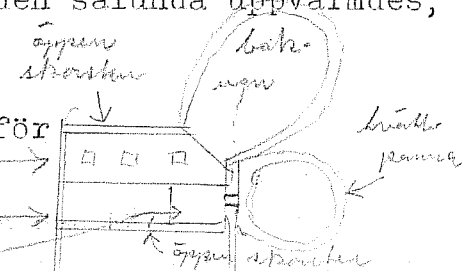 den sålunda uppvärmdes,
öppen
skorsten
bak-
ugn
för
tvätt-
panna
öppen skorsten